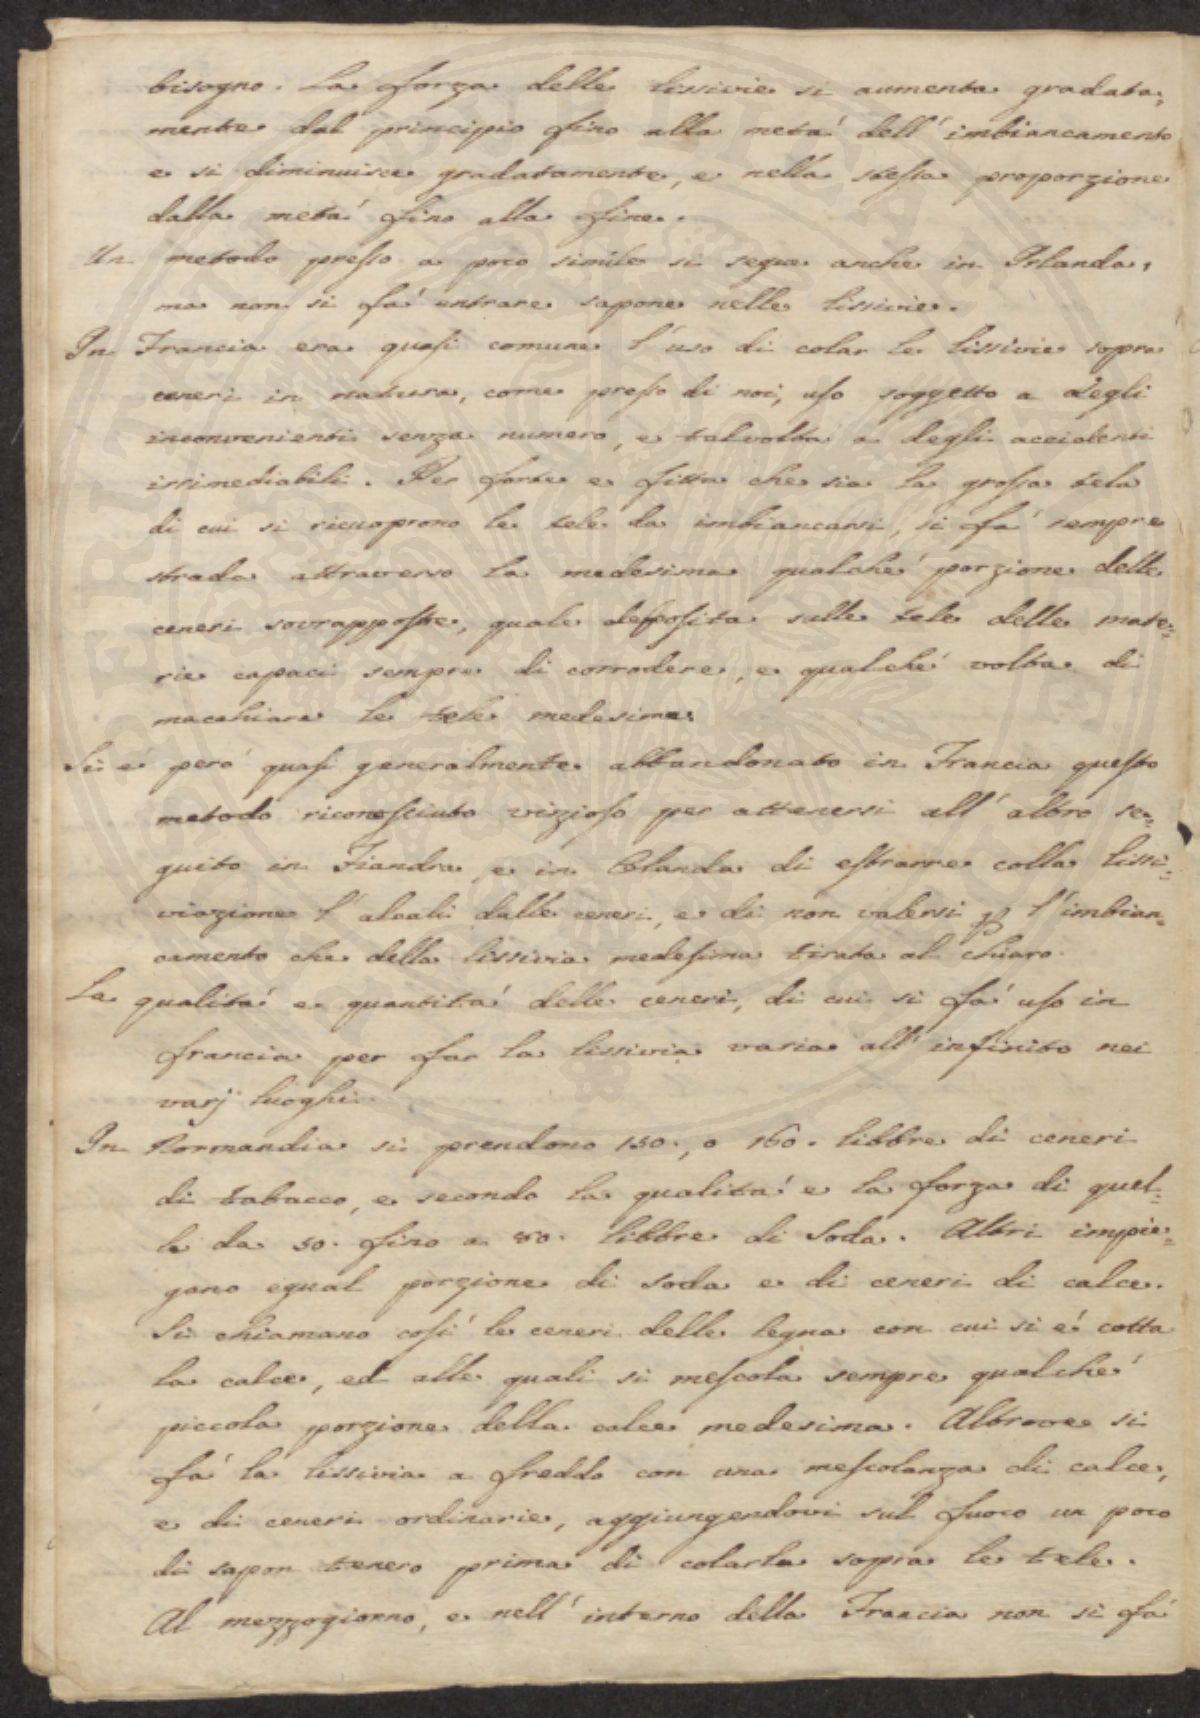 bisogno. La forza delle lissivie si aumenta gradata=
mente dal principio fino alla metá dell'imbiancamento
e si diminuisce gradatamente, e nella stessa proporzione
dalla metá fino alla fine.
Un metodo presso a poco simile si segue anche in Irlanda,
ma non si fá entrare sapone nelle lissivie.
In Francia era quasi comune l'uso di colar le lissivie sopra
ceneri in natura, come presso di noi, uso soggetto a degli
inconvenienti senza numero, e talvolta a degli accidenti
irrimediabili. Per forte e fitta che sia la grossa tela
di cui si ricuoprono le tele da imbiancarsi, si fá sempre
strada attraverso la medesima qualché porzione delle
ceneri sovrapposte, quale deposita sulle tele delle mate=
rie capaci sempre di corrodere, e qualché volta di
macchiare le tele medesime.
Si é peró quasi generalmente abbandonato in Francia questo
metodo riconosciuto vizioso per attenersi all'altro se=
guito in Fiandra, e in Olanda di estrarre colla lissi=
viazione l'alcali dalle ceneri, e di non valersi ꝑ l'imbian=
camento che della lissivia medesima tirata al chiaro.
La qualitá e quantitá delle ceneri, di cui si fá uso in
francia per far la lissivia varia all'infinito nei
varj luoghi.
In Normandia si prendono 150., o 160. libbre di ceneri
di tabacco, e secondo la qualitá e la forza di quel=
le da 50. fino a 80. libbre di Soda. Altri impie=
gano egual porzione di soda e di ceneri di calce.
Si chiamano cosí le ceneri delle legna con cui si é cotta
la calce, ed alle quali si mescola sempre qualché
piccola porzione della calce medesima. Altrove si
fá la lissivia a freddo con una mescolanza di calce,
e di ceneri ordinarie, aggiungendovi sul fuoco un poco
di sapon tenero prima di colarla sopra le tele.
Al mezzogiorno, e nell'interno della Francia non si fá